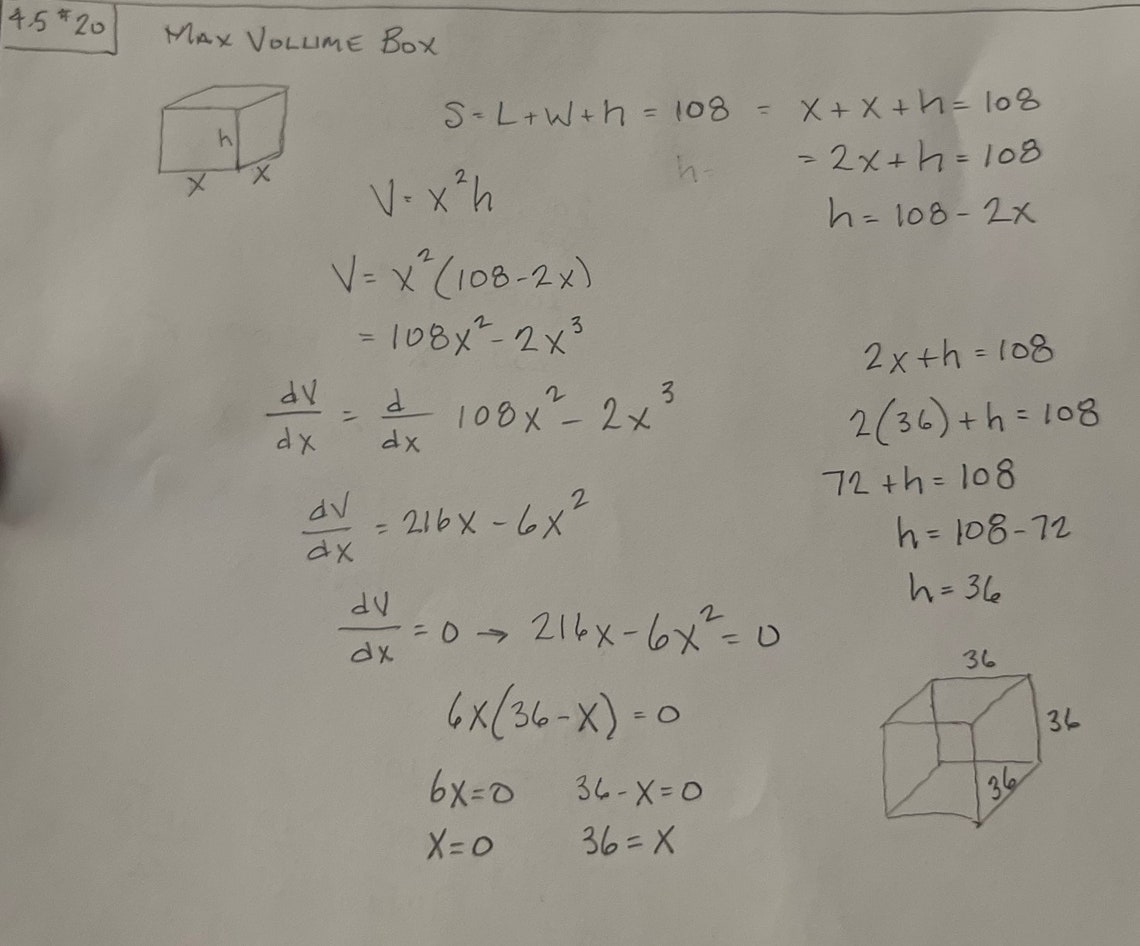 4.5 #20
MAX VOLUME BOX
h
x x
S = L + W + h = 108 = x + x + h = 108
h - = 2x + h = 108
V = x²h
h = 108 - 2x
V = x²(108 - 2x)
= 108x² - 2x³
dV/dx = d/dx 108x² - 2x³
dV/dx = 216x - 6x²
dV/dx = 0 → 216x - 6x² = 0
6x(36 - x) = 0
6x = 0 36 - x = 0
x = 0 36 = x
2x + h = 108
2(36) + h = 108
72 + h = 108
h = 108 - 72
h = 36
36
36
36